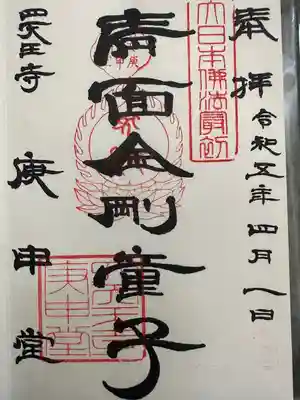 奉拝
令和五年四月一日
大日本佛法最初
青面金剛童子
庚申
四天王寺
庚申堂
四天王寺
庚申堂